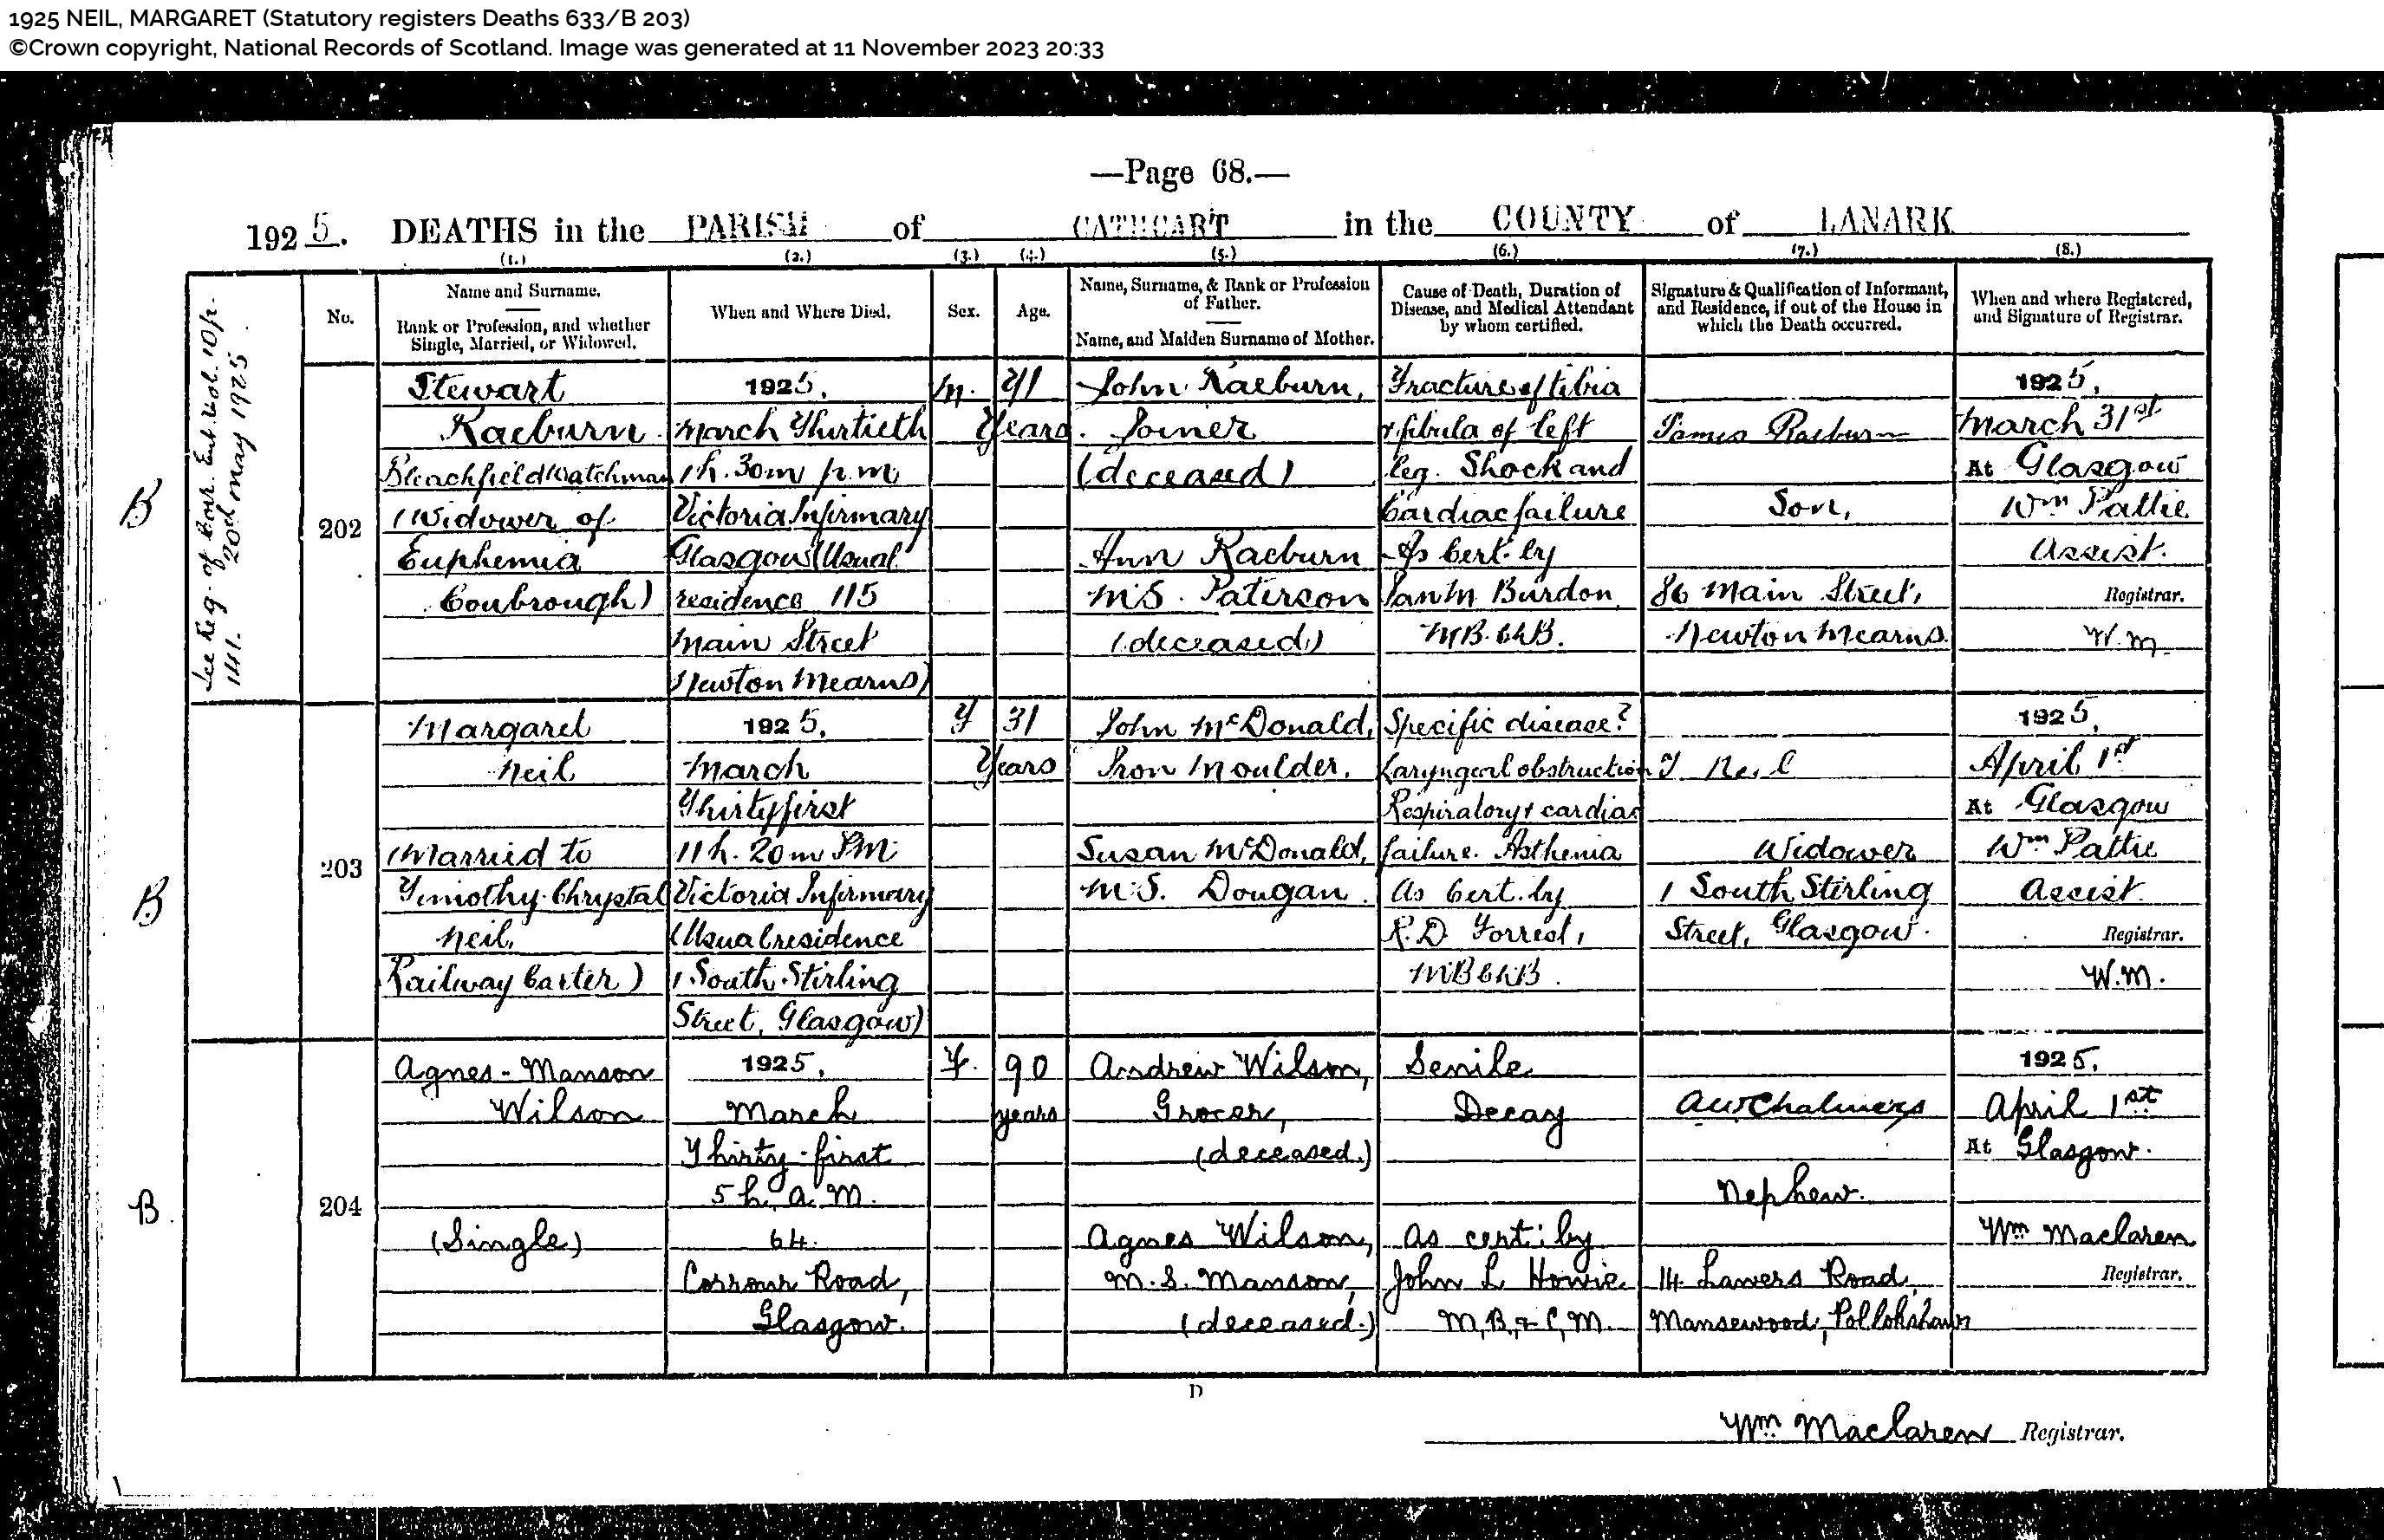 1925 NEIL, MARGARET (Statutory registers Deaths 633/B 203)
©Crown copyright, National Records of Scotland. Image was generated at 11 November 2023 20:33
—Page 68.—
1925. DEATHS in the PARISH of CATHCART in the COUNTY of LANARK
(1.) (2.) (3.) (4.) (5.) (6.) (7.) (8.)
No.
Name and Surname.
Rank or Profession, and whether
Single, Married, or Widowed.
When and Where Died.
Sex.
Age.
Name, Surname, & Rank or Profession
of Father.
Name, and Maiden Surname of Mother.
Cause of Death, Duration of
Disease, and Medical Attendant
by whom certified.
Signature & Qualification of Informant,
and Residence, if out of the House in
which the Death occurred.
When and where Registered,
and Signature of Registrar.
See Reg. of Cor. Ent. Vol. 10 p.
141. 20th May 1925
B
202
Stewart
Raeburn
Bleachfield Watchman
(Widower of
Euphemia
Coubrough)
1925.
March Thirtieth
1h. 30m p.m
Victoria Infirmary
Glasgow (Usual
residence 115
Main Street
Newton Mearns)
M.
71
Years
John Raeburn,
Joiner
(deceased)
Ann Raeburn
M.S. Paterson
(deceased)
Fracture of tibia
& fibula of left
leg. Shock and
Cardiac failure
As Cert. by
Ian M Burdon
M.B. Ch.B.
James Raeburn
Son,
86 Main Street,
Newton Mearns.
1925,
March 31st
At Glasgow
Wm Pattie
Assist.
Registrar.
W.M.
B
203
Margaret
Neil
(Married to
Timothy Chrystal
Neil,
Railway Carter)
1925,
March
Thirtyfirst
11h. 20m P.M.
Victoria Infirmary
(Usual residence
1 South Stirling
Street, Glasgow)
F
31
Years
John McDonald,
Iron Moulder,
Susan McDonald,
M.S. Dougan.
Specific disease?
Laryngeal obstruction
Respiratory & cardiac
failure. Asthenia
As Cert. by
R.D Forrest,
M.B Ch.B.
T Neil
Widower
1 South Stirling
Street, Glasgow.
1925,
April 1st
At Glasgow
Wm Pattie
Assist.
Registrar.
W.M.
B.
204
Agnes-Manson
Wilson
(Single)
1925,
March
Thirty-first
5 h. a.m.
64.
Corrour Road,
Glasgow.
F.
90
years
Andrew Wilson,
Grocer,
(deceased.)
Agnes Wilson,
M.S. Manson,
(deceased.)
Senile
Decay
As cert: by
John L Howie
M,B,& C,M.
AW Chalmers
Nephew.
14 Lawers Road,
Mansewood, Pollokshaws
1925,
April 1st
At Glasgow.
Wm Maclaren
Registrar.
D
Wm Maclaren Registrar.